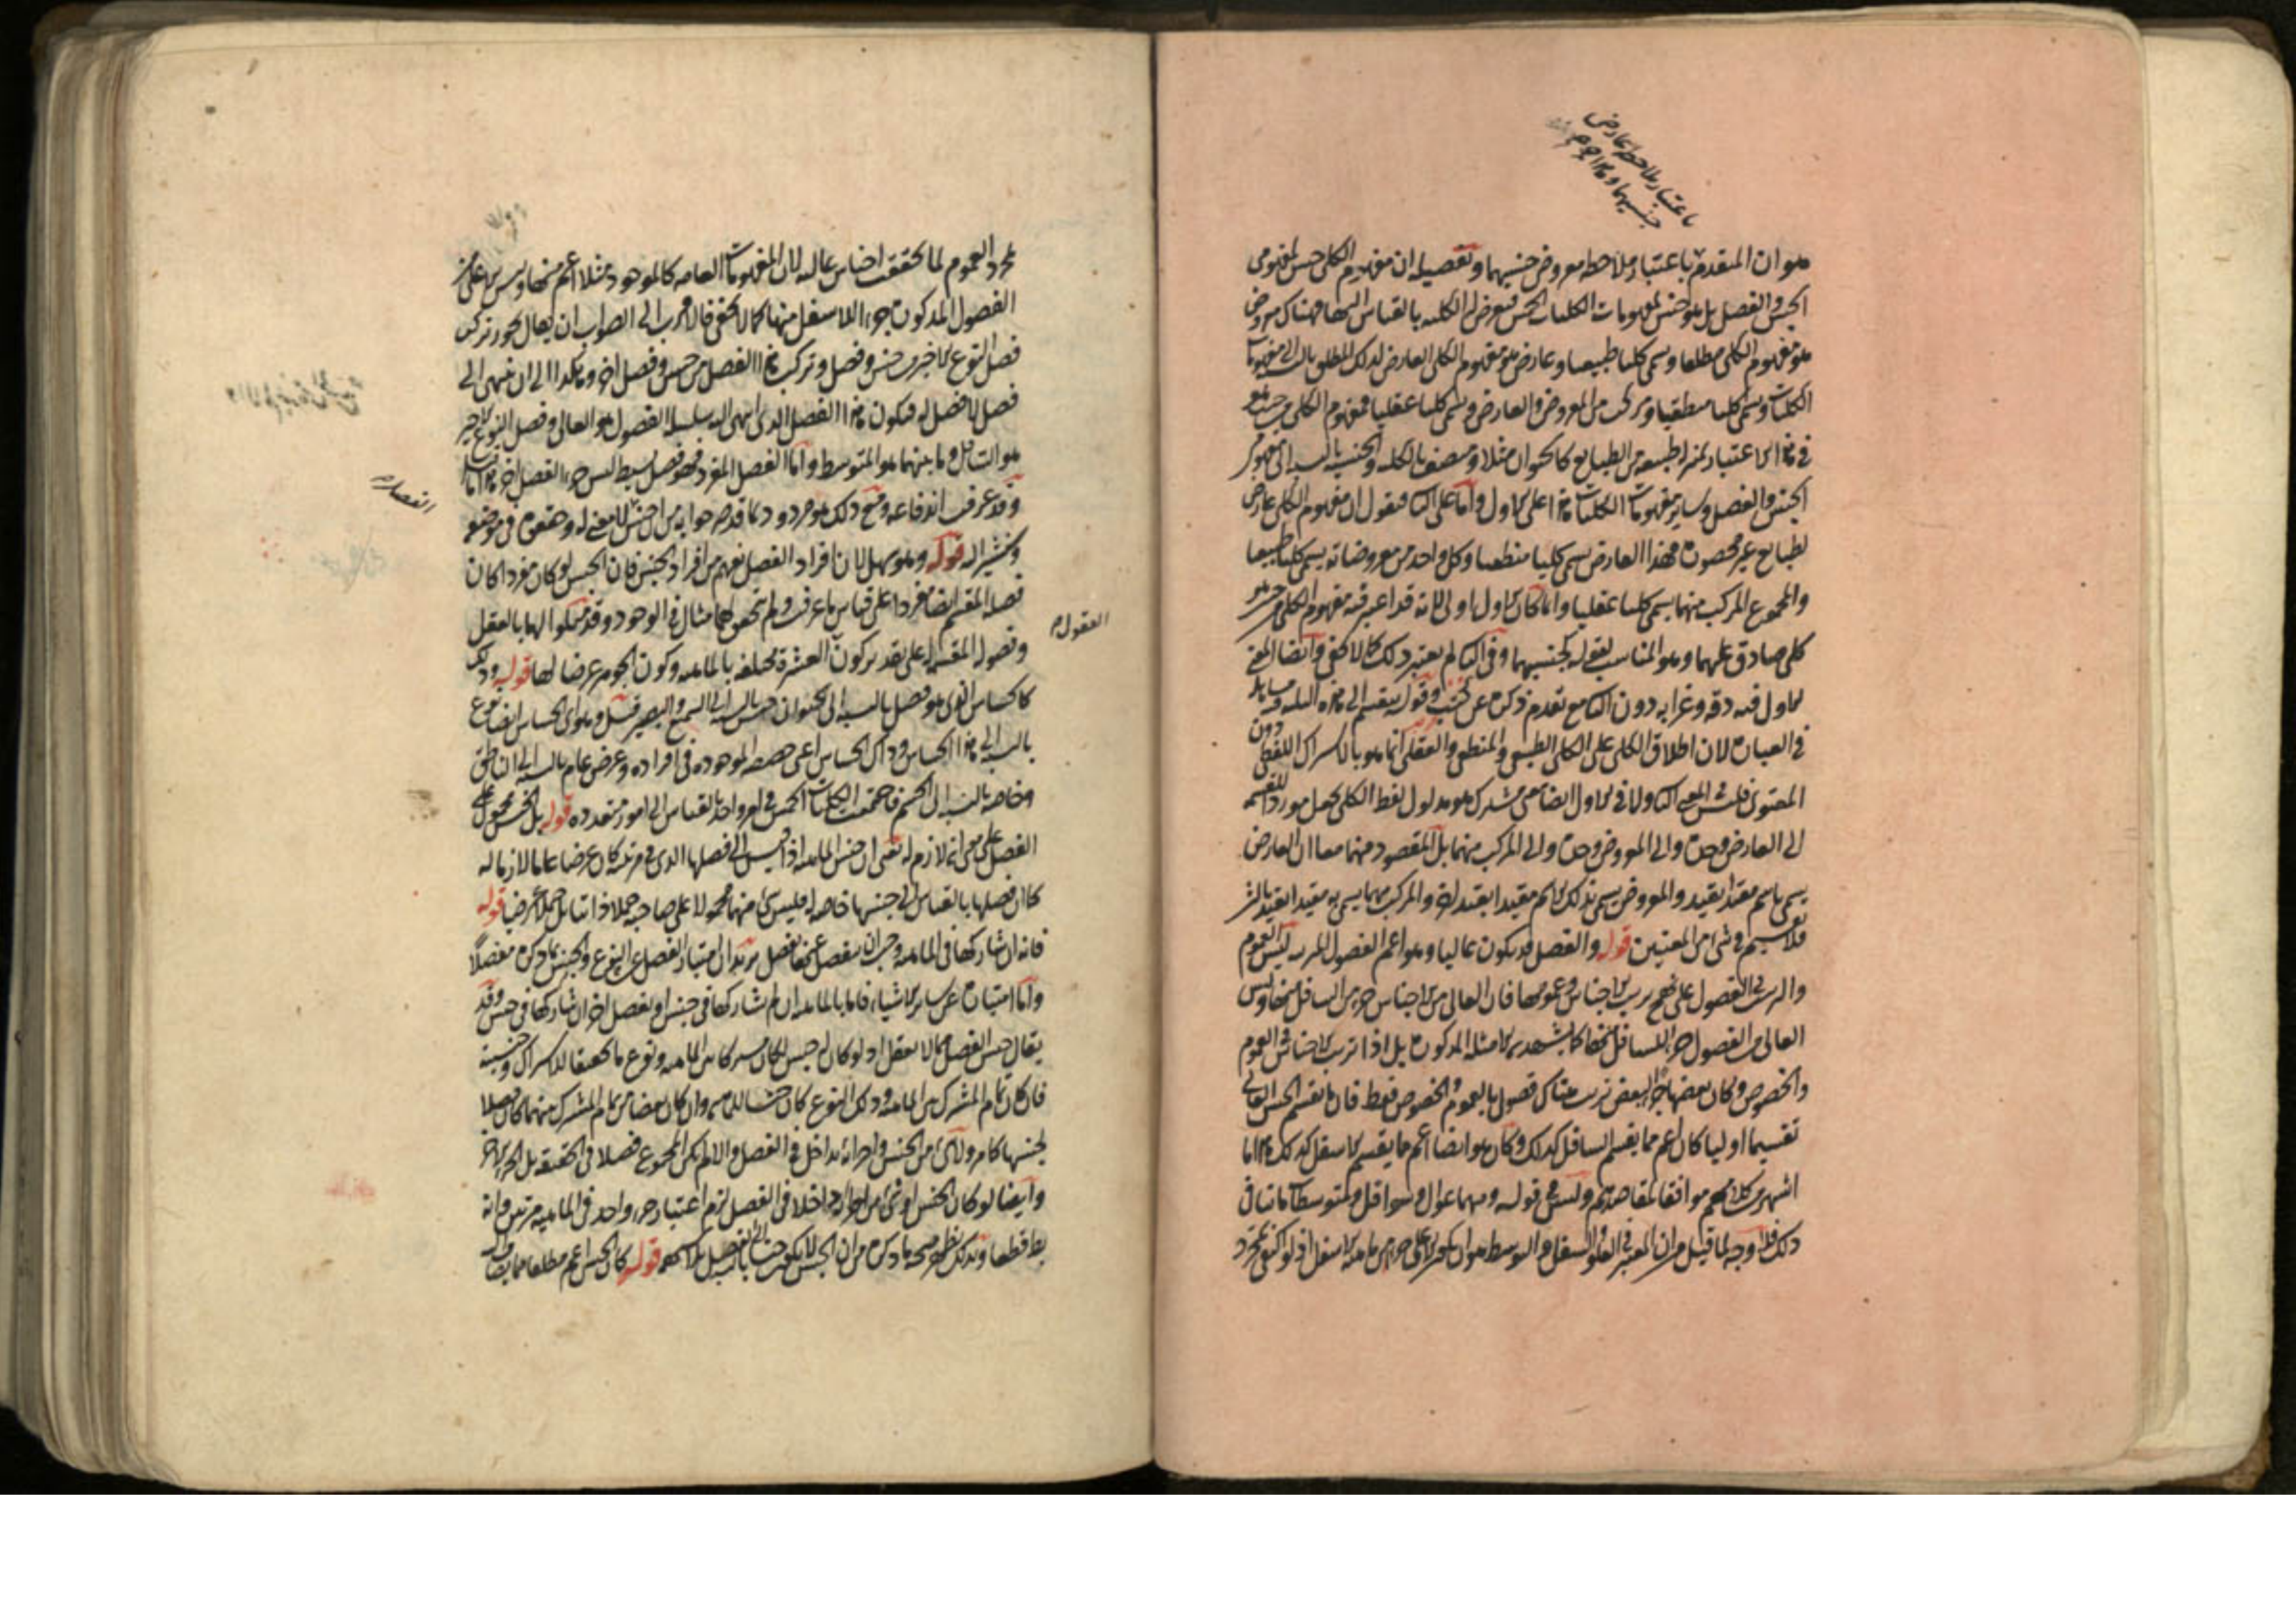 باعتبار ملاحظة عارض
جنسيهما و
هو ان المتقدم باعتبار ملاحظه معروض جنسيهما وتفصيله ان مفهوم الكلى جنس لمفهومى
الجنس والفصل بل هو جنس لمفهومات الكليات الخمس فتعرض له الكليه بالقياس اليها فهناك معروض
هو مفهوم الكلى مطلقا وسمى كليا طبيعيا وعارض هو مفهوم الكلى العارض لذلك المطلق بالنسبه الى مفهومات
الكليات وسمى كليا منطقيا ومركب من المعروض والعارض وسمى كليا عقليا فمفهوم الكلى من حيث هو
فى هذا الاعتبار بمنزله طبيعه من الطبايع كالحيوان مثلا ومتصف بالكليه والجنسيه بالنسبه الى مفهوم
الجنس والفصل وساير مفهومات الكليات هذا على الاول واما على الثانى فنقول ان مفهوم الكلى عارض
لطبايع غير محصورة فهذا العارض يسمى كليا منطقيا وكل واحد من معروضاته يسمى كليا طبيعيا
والمجموع المركب منهما يسمى كليا عقليا وانما كان الاول اولى لانه قد اعتبر فيه مفهوم الكلى من حيث هو
كلى صادق عليهما وهو المناسب لقوله لجنسيهما وفى الثانى لم يعتبر ذلك كما لا يخفى وايضا المعنى
الاول فيه دقه وغرابه دون الثانى مع تقدم ذكره عن كثب وقوله ينقسم الى هذه الثلثه فيه مساهله
فى العبارة لان اطلاق الكلى على الكلى الطبيعى والمنطقى والعقلى انما هو بالاشتراك اللفظى دون
المعنوى فليس فى المعنى الثانى ولا فى الاول ايضا معنى مشترك هو مدلول لفظ الكلى يجعل موردا للقسمه
الى العارض وحده والى المعروض وحده والى المركب منهما بل المقصود منهما معا ان العارض
يسمى باسم مقيدا بقيد والمعروض يسمى بذلك الاسم مقيدا بقيد اخر والمركب منهما يسمى به مقيدا بقيد ثالث
فلا تقسيم فى شى من المعنيين قوله والفصل قد يكون عاليا وهو اعم الفصول المترتبه ليس العموم
والترتب فى الفصول على نهج ترتب الاجناس وعمومها فان العالى من الاجناس جزء من السافل منها وليس
العالى من الفصول جزءا للسافل منها كما يشهد به الامثله المذكورة بل اذا ترتب الاجناس فى العموم
والخصوص وكان بعضها جزءا لبعض ترتب هناك فصول بالعموم والخصوص فقط فان ما يقسم الجنس العالى
تقسيما اوليا كان اعم مما يقسم السافل كذلك وكان هو ايضا اعم مما يقسم الاسفل كذلك هذا ما
اشتهر من كلامهم موافقا لمقاصدهم وليس فى قوله ومنهما عوال وسوافل ومتوسطات ما ينافى
ذلك فلا وجه لما قيل من ان المعتبر فى العلو والسفل والتوسط هو ان يكون الاعلى جزءا من ماهية الاسفل اذ لو اكتفى بمجرد
مجرد العموم لما تحققت اجناس عاليه لان المفهومات العامه كالموجود مثلا اعم منها وليس الاعلى من
الفصول المذكورة جزءا للاسفل منها كما لا يخفى فالاقرب الى الصواب ان يقال يجوز تركب
فصل النوع الاخير من جنس وفصل وتركب هذا الفصل من جنس وفصل اخر وهكذا الى ان ينتهى الى
فصل لا فصل له فيكون هذا الفصل الذى انتهى اليه سلسله الفصول هو العالى وفصل النوع الاخير
هو السافل وما بينهما هو المتوسط واما الفصل المفرد فهو فصل بسيط ليس جزءا لفصل اخر هذا ما قيل
وقد عرفت اندفاعه ومع ذلك هو مردود بما قدم جوابه من ان جنس لا معنى له وهفوة فى موضع
ونشير اليه قوله وهو سهل لان افراد الفصل تفهم من افراد الجنس فان الجنس لو كان مفردا كان
فصله المقسم ايضا مفردا على قياس ما عرفت ولم يتحقق لهما مثال فى الوجود وقد تمسكوا لهما بالعقل
وفصوله المقسمه له على تقدير كون العشرة مختلفه بالماهيه وكون الجوهر عرضا لها قوله وذلك
كالحساس الذى هو فصل بالنسبه الى الحيوان جنس بالنسبه الى السميع والبصير قيل وهو اى الحساس ايضا نوع
بالنسبه الى هذا الحساس وذاك الحساس اعنى حصصه الموجوده فى افراده وعرض عام بالنسبه الى الناطق
وخاصه بالنسبه الى الجسم فاجتمعت الكليات الخمس فى امر واحد بالقياس الى امور متعدده قوله بل الجنس محمول على
الفصل على معنى انه لازم له يعنى ان جنس الماهيه اذا قيس الى فصلها الذى فى مرتبته كان عرضا عاما لازما له
كما ان فصلها بالقياس الى جنسها خاصه له فليس شى منهما محمولا على صاحبه حملا ذاتيا بل حملا عرضيا قوله
فانه ان شاركها فى الماهيه وجب ان ينفصل عنها بفصل يريد ان امتياز الفصل عن النوع والجنس بما ذكره مفصلا
واما امتيازه عن ساير الاشياء فاما بالماهيه ان لم يشاركها فى جنس او بفصل اخر ان شاركها فى جنس وقد
يقال جنس الفصل مما لا يعقل اذ لو كان له جنس لكان مشتركا بين الماهيه ونوع ما تحقيقا للاشتراك وجنسيته
فان كان تمام المشترك بين الماهيه وذلك النوع كان جنسا للماهيه وان كان بعضا من تمام المشترك بينهما كان فصلا
لجنسها كما مر ولا شى من الجنس واجزائه بداخل فى الفصل والا لم يكن المجموع فصلا فى الحقيقه بل الجزء الاخر
وايضا لو كان الجنس او شى من اجزائه داخلا فى الفصل لزم اعتبار جزء واحد فى الماهيه مرتين وانه
بط قطعا وبذلك يظهر صحه ما ذكره من ان الجنس لا يكون جنسا بالنسبه الى الفصل قوله كان الجنس اعم مطلقا مما
العقول م
انفصاله